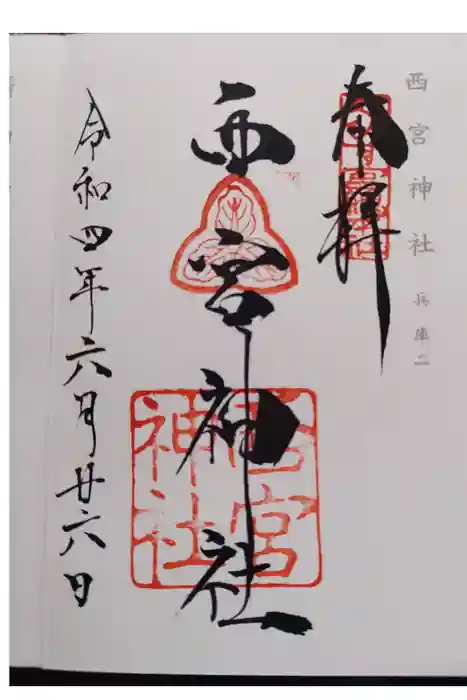 西宮神社 兵庫二
奉拝
西宮神社
西宮
神社
令和四年六月廿六日